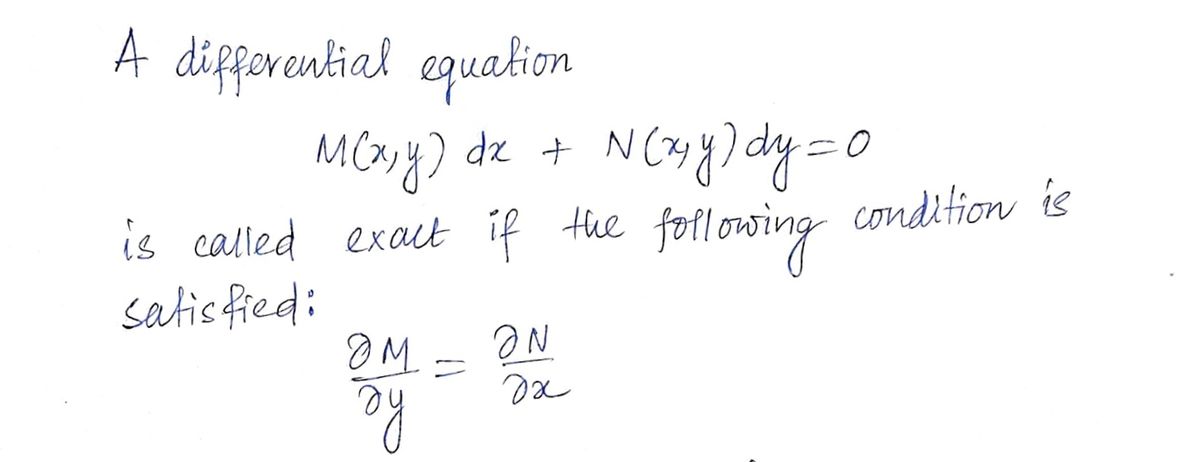 A differential equation
M(x,y) dx + N(x,y) dy = 0
is called exact if the following condition is
satisfied:
∂M/∂y = ∂N/∂x